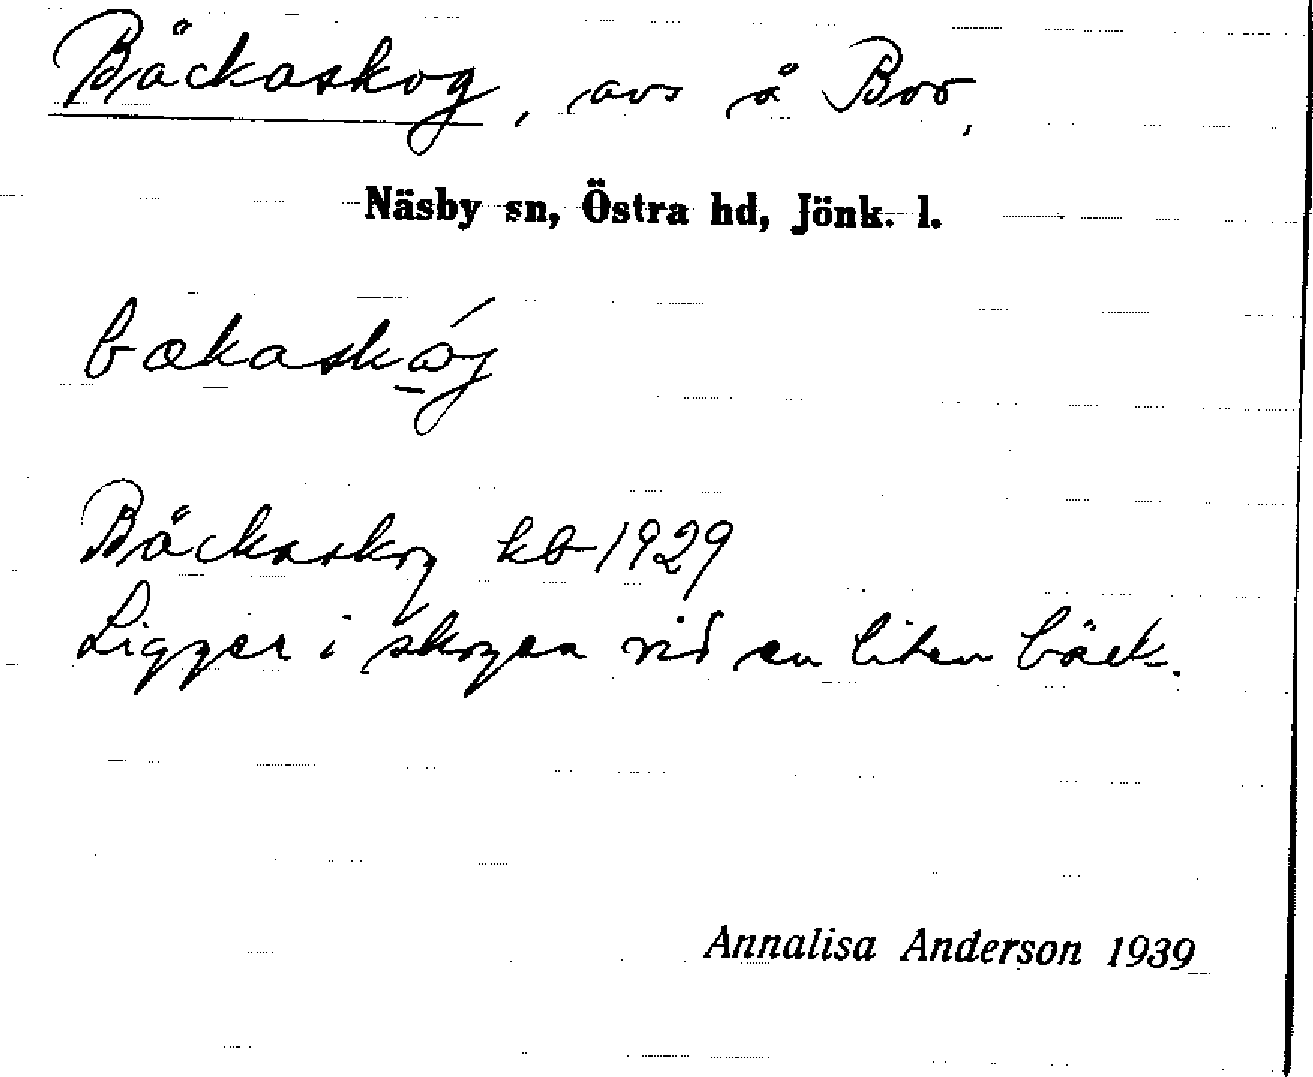 Bäckaskog, avs å Boo,
Näsby sn, Östra hd, Jönk. l.
bækaskǿj
Bäckaskog kb 1929
Ligger i skogen vid en liten bäck.
Annalisa Anderson 1939